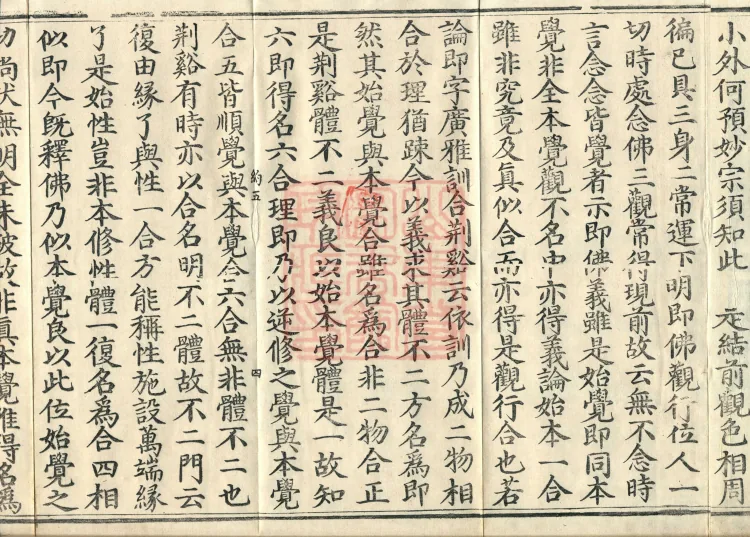 小外何預妙宗須知此　定結前觀色相周
徧已具三身二常運下明即佛觀行位人一
切時處念佛三觀常得現前故云無不念時
言念念皆覺者示即佛義雖是始覺即同本
覺非全本覺觀不名中亦得義論始本一合
雖非究竟及真似合而亦得是觀行合也若
論即字廣雅訓合荆谿云依訓乃成二物相
合於理猶踈今以義求其體不二方名爲即
然其始覺與本覺合雖名爲合非二物合正
是荆谿體不二義良以始本覺體是一故知
六即得名六合理即乃以逆修之覺與本覺
約五　四
合五皆順覺與本覺合六合無非體不二也
荆谿有時亦以合名明不二體故不二門云
復由緣了與性一合方能稱性施設萬端緣
了是始性豈非本修性體一復名爲合四相
似即今旣釋佛乃似本覺良以此位始覺之
功尚伏無明全未破故非真本覺惟得名爲